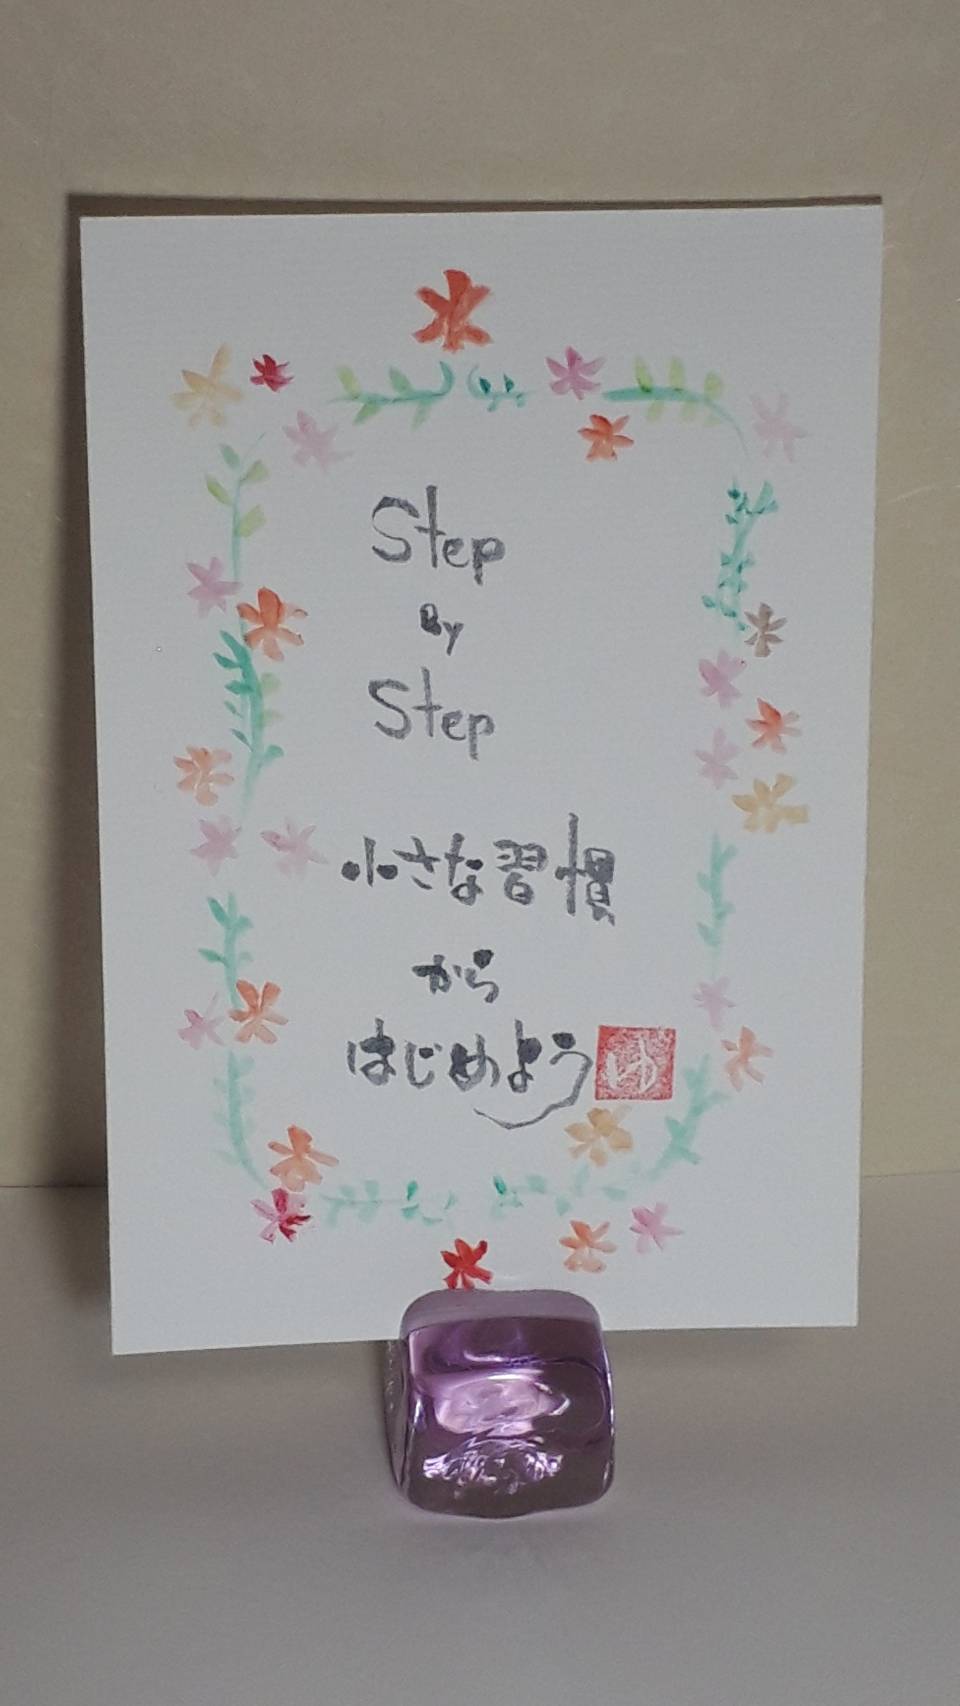 Step
By
Step
小さな習慣
から
はじめよう
ゆ